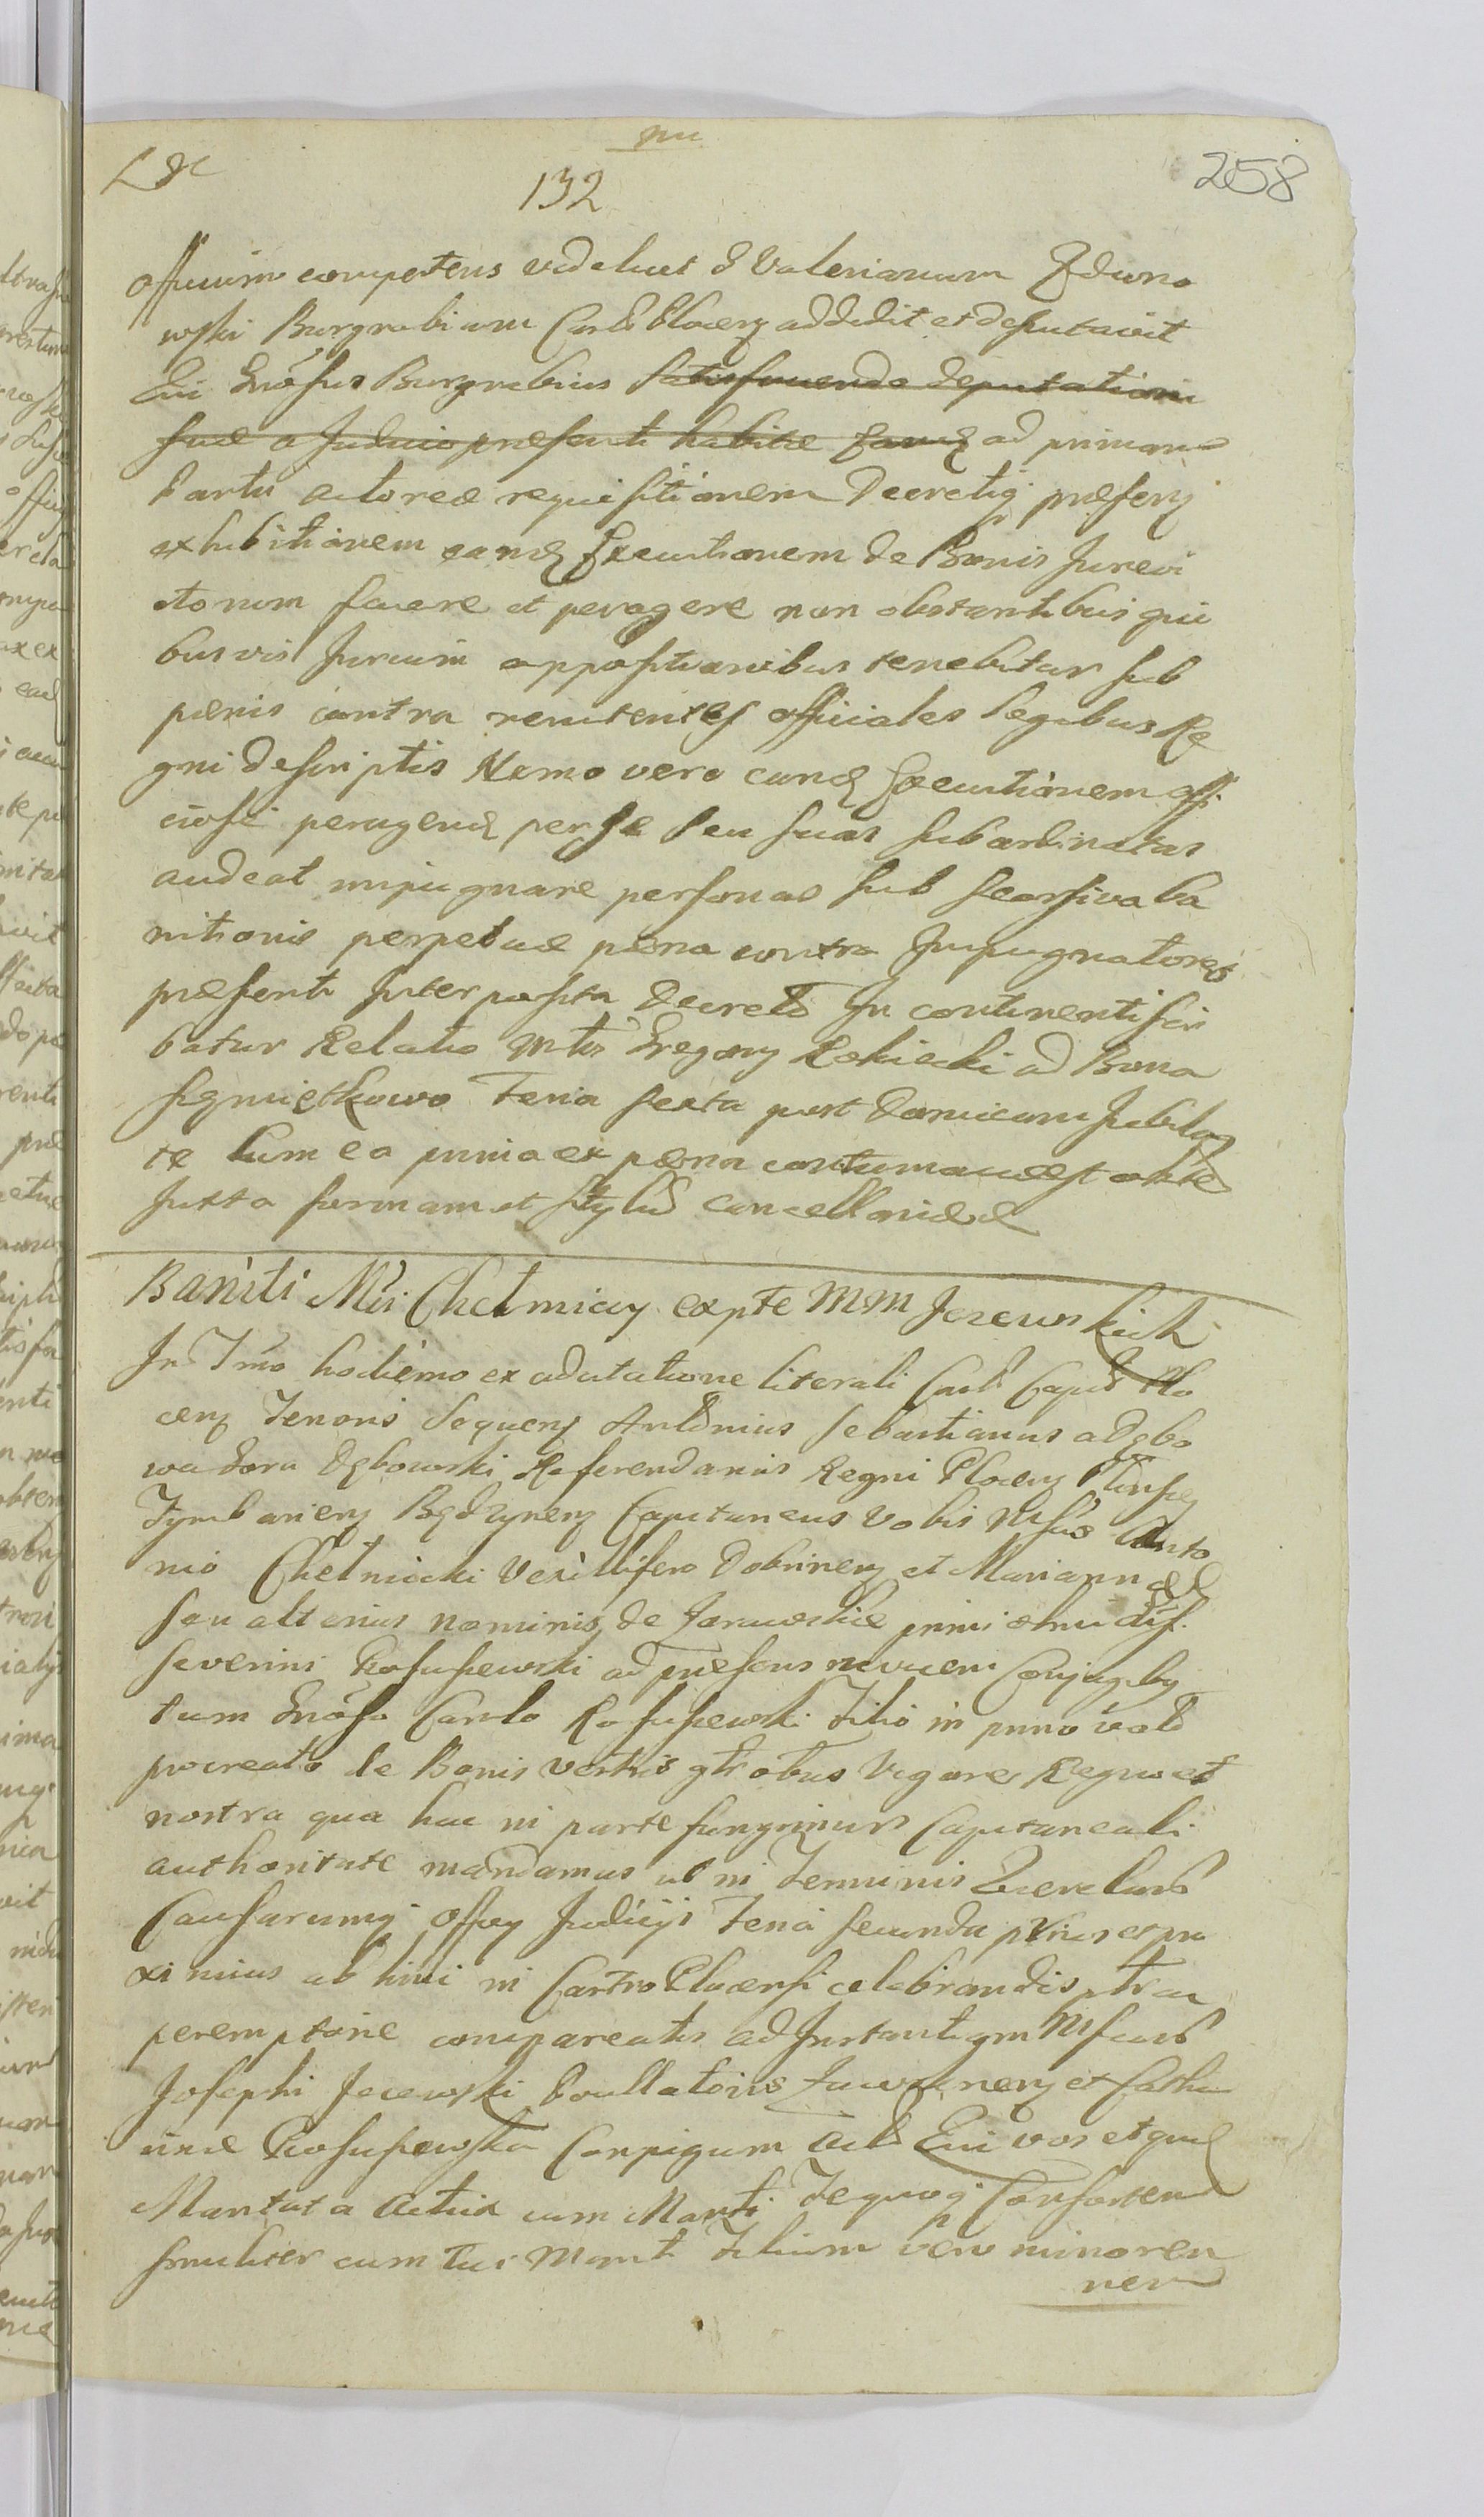 nu
258
132
Officium competens videlicet G Valerianum Zduno
wski Burgrabium Castr Plocen addidit et deputavit
Qui Gnosus Burgrabius satisfaciendo deputationi
suæ a Judicio præsenti habitæ eand ad primam
Partis actoreæ requisitionem Decretiq præsen
exhibitionem eand Executionem de Bonis Jurevi
ctorum facere et peragere non obstantibus qui
busvis Jurium oppositionibus tenebitur sub
pœnis contra renitentes officiales legibus Re
gni descriptis Nemo vero eand Executionem offi
ciose peragend per se seu suas subordinatas
audeat impugnare personas sub seorsiva ba
nitionis perpetuæ pœna contra Impugnatores
præsenti Interposita Decreto In continenti scri
batur Relatio Mtis Gregory Rokicki ad Bona
Szmiętkowo Feria sexta post Domicam Jubila
te Cum ea primaex pœna contumaciæ
Juxta formam et stylu Cancellariæ
Baniti Mci Chełmicy ex pte MM Jezewskich
In Tmo hodierno ex adcitatione literali Castr Capit Plo
cen Tenoris Sequen Antonius Sebastianus a Dębo
wa Gora Dębowski Referendarius Regni Plocen
Tymbarien Będzynen Capitaneus Vobis Mfco Anto
nio Chełmicki Vexillifero Dobrinen et Mariannæ
seu alterius nominis de Jarnowskie primi olim
Severini Rosciszewski ad præsens niviceni Conjugiby
tum Gnoso Carolo Rosciszewski Filio in primo voto
procreato de Bonis vestris gtrobus Vigore Regia et
nostra qua hac in parte fungimur Capitaneali
authoritate mandamus ut in Terminis Querelarū
Causarumq Officy Judicys Feria secunda prius et pro
ximius ab hinc in Castro Plocensi celebrandis
peremptorie compareatis ad Instantiam Mfcorū
Josephi Jezewski Poullatoris Zawkrzynen et Catha
rinæ Rosciszewska Conjugum Act Qui vos et quid
Maritat a Actrix cum Marito Teq Consortem
similiter cum tui Marit Filium vero minoren
nem